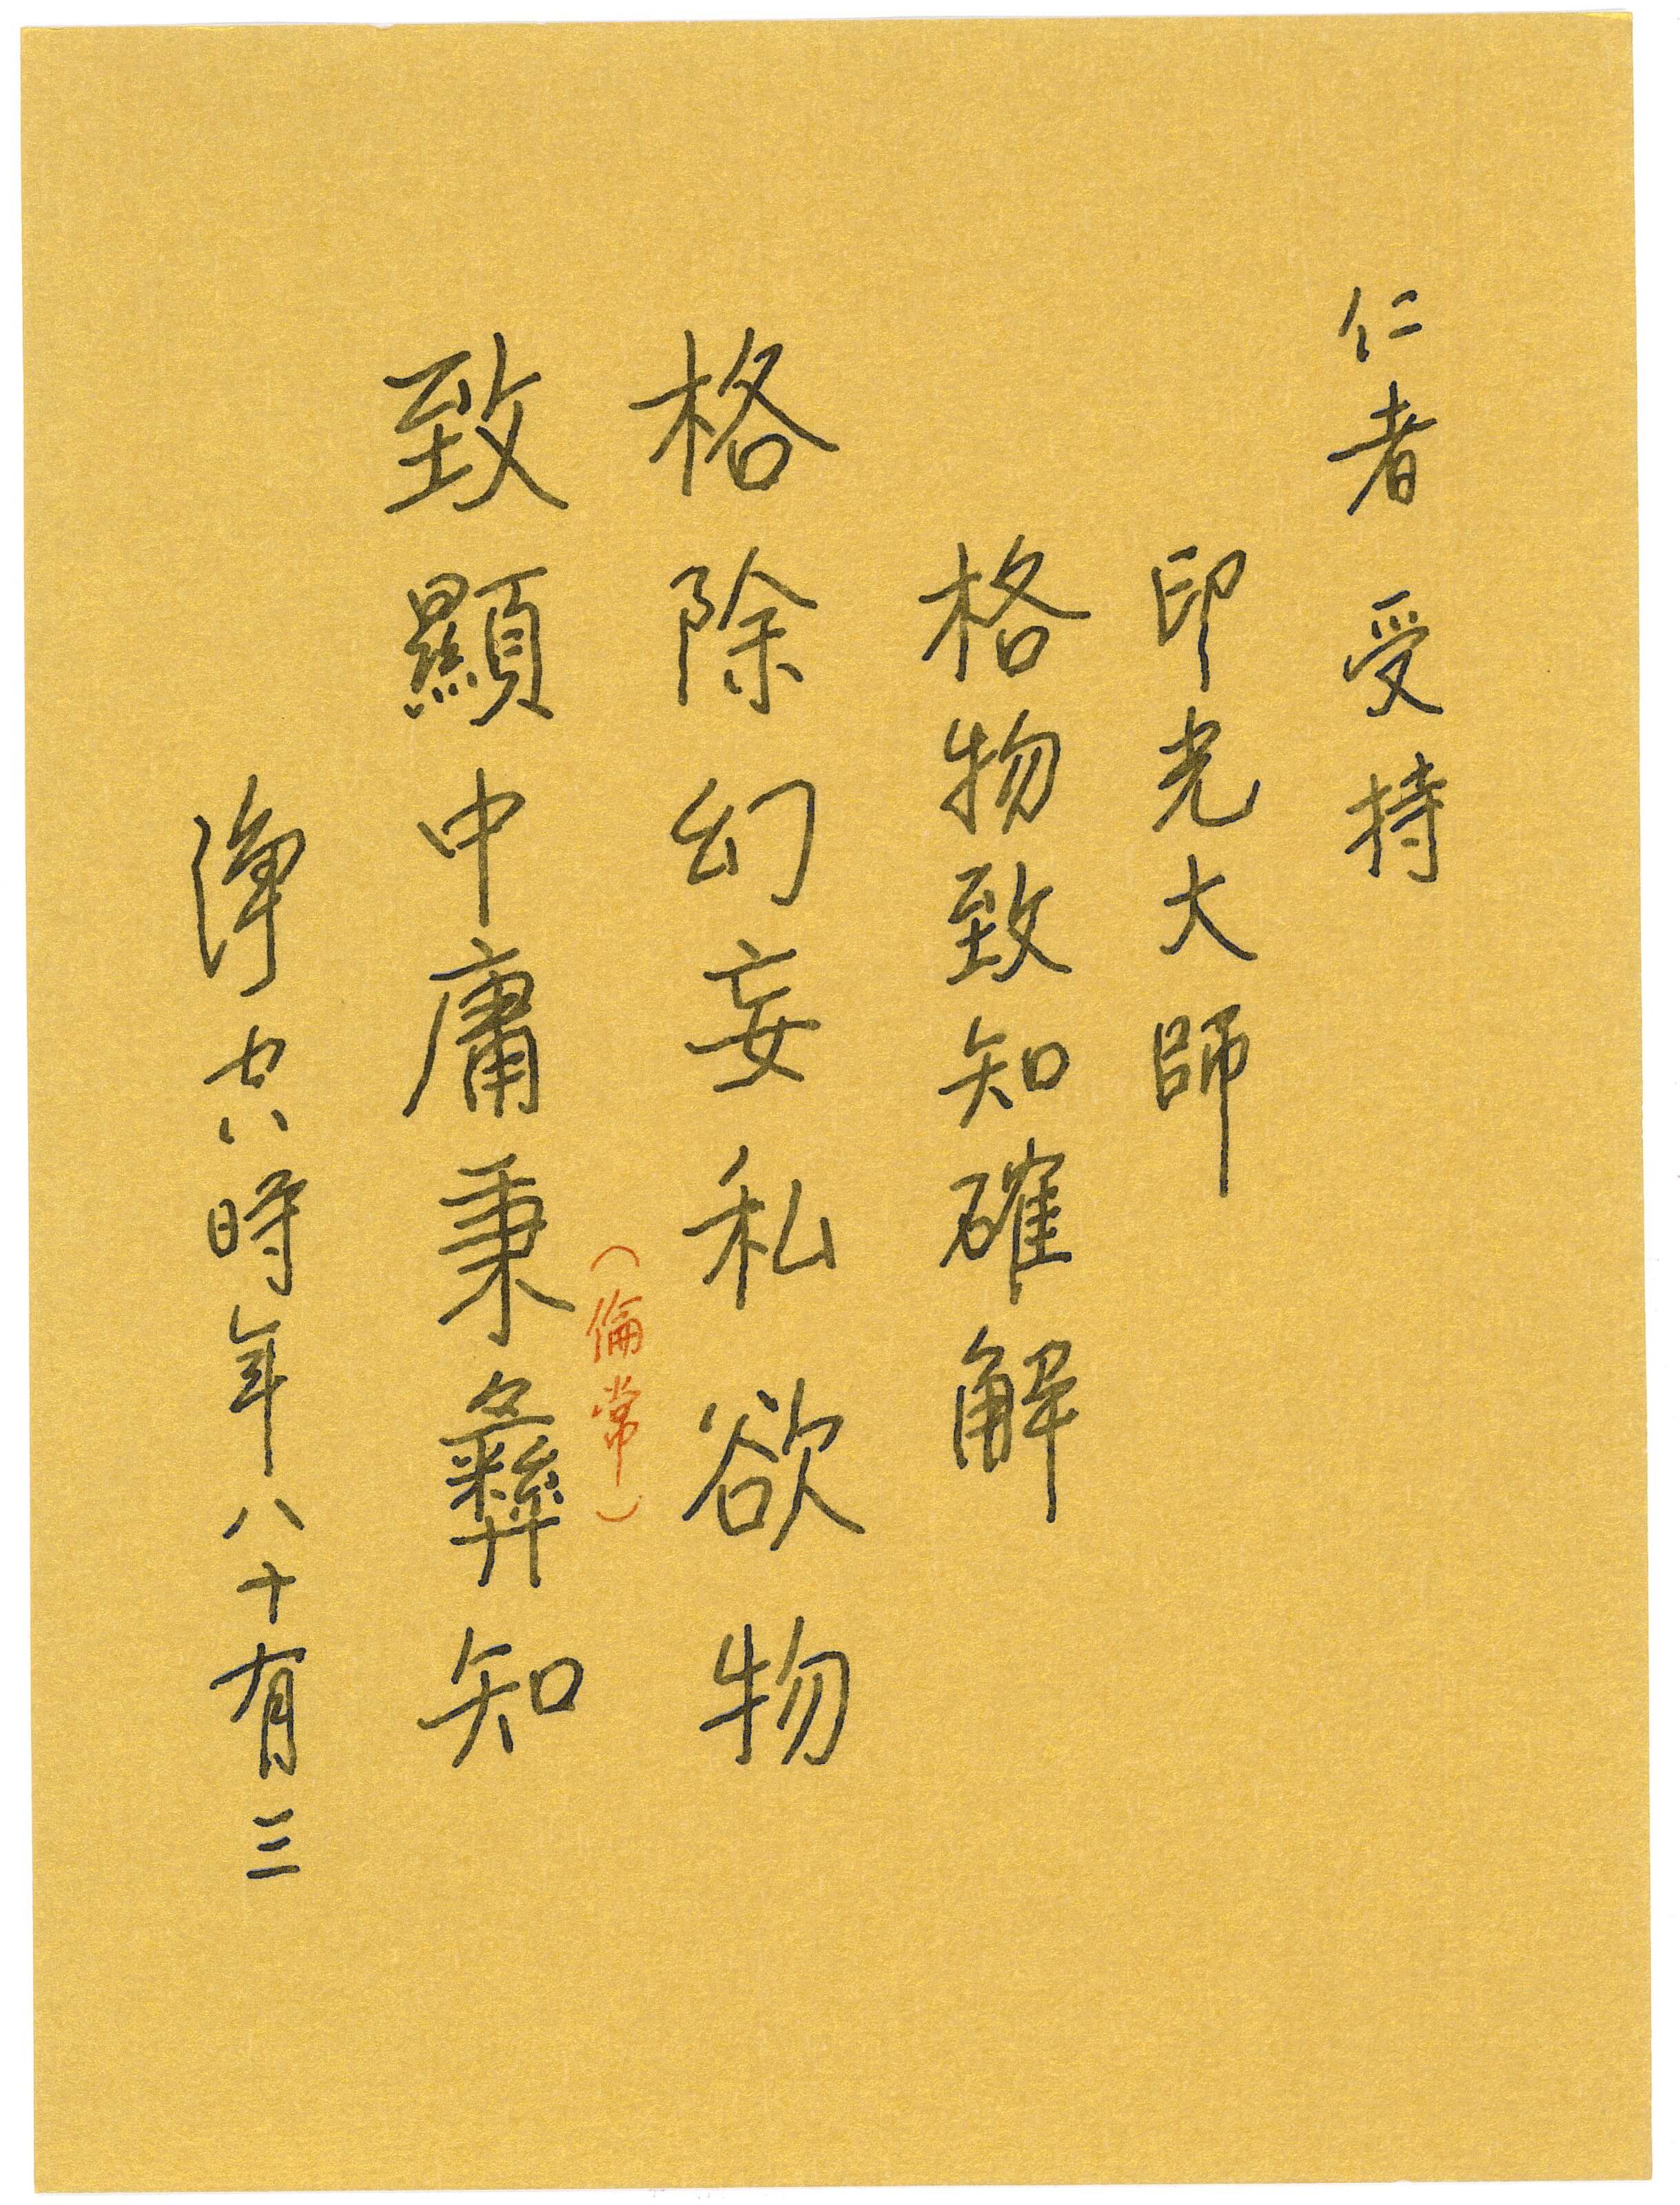 仁者 受持
印光大師
格物致知確解
格除幻妄私欲物
致顯中庸秉彝知
（倫常）
淨空時年八十有三